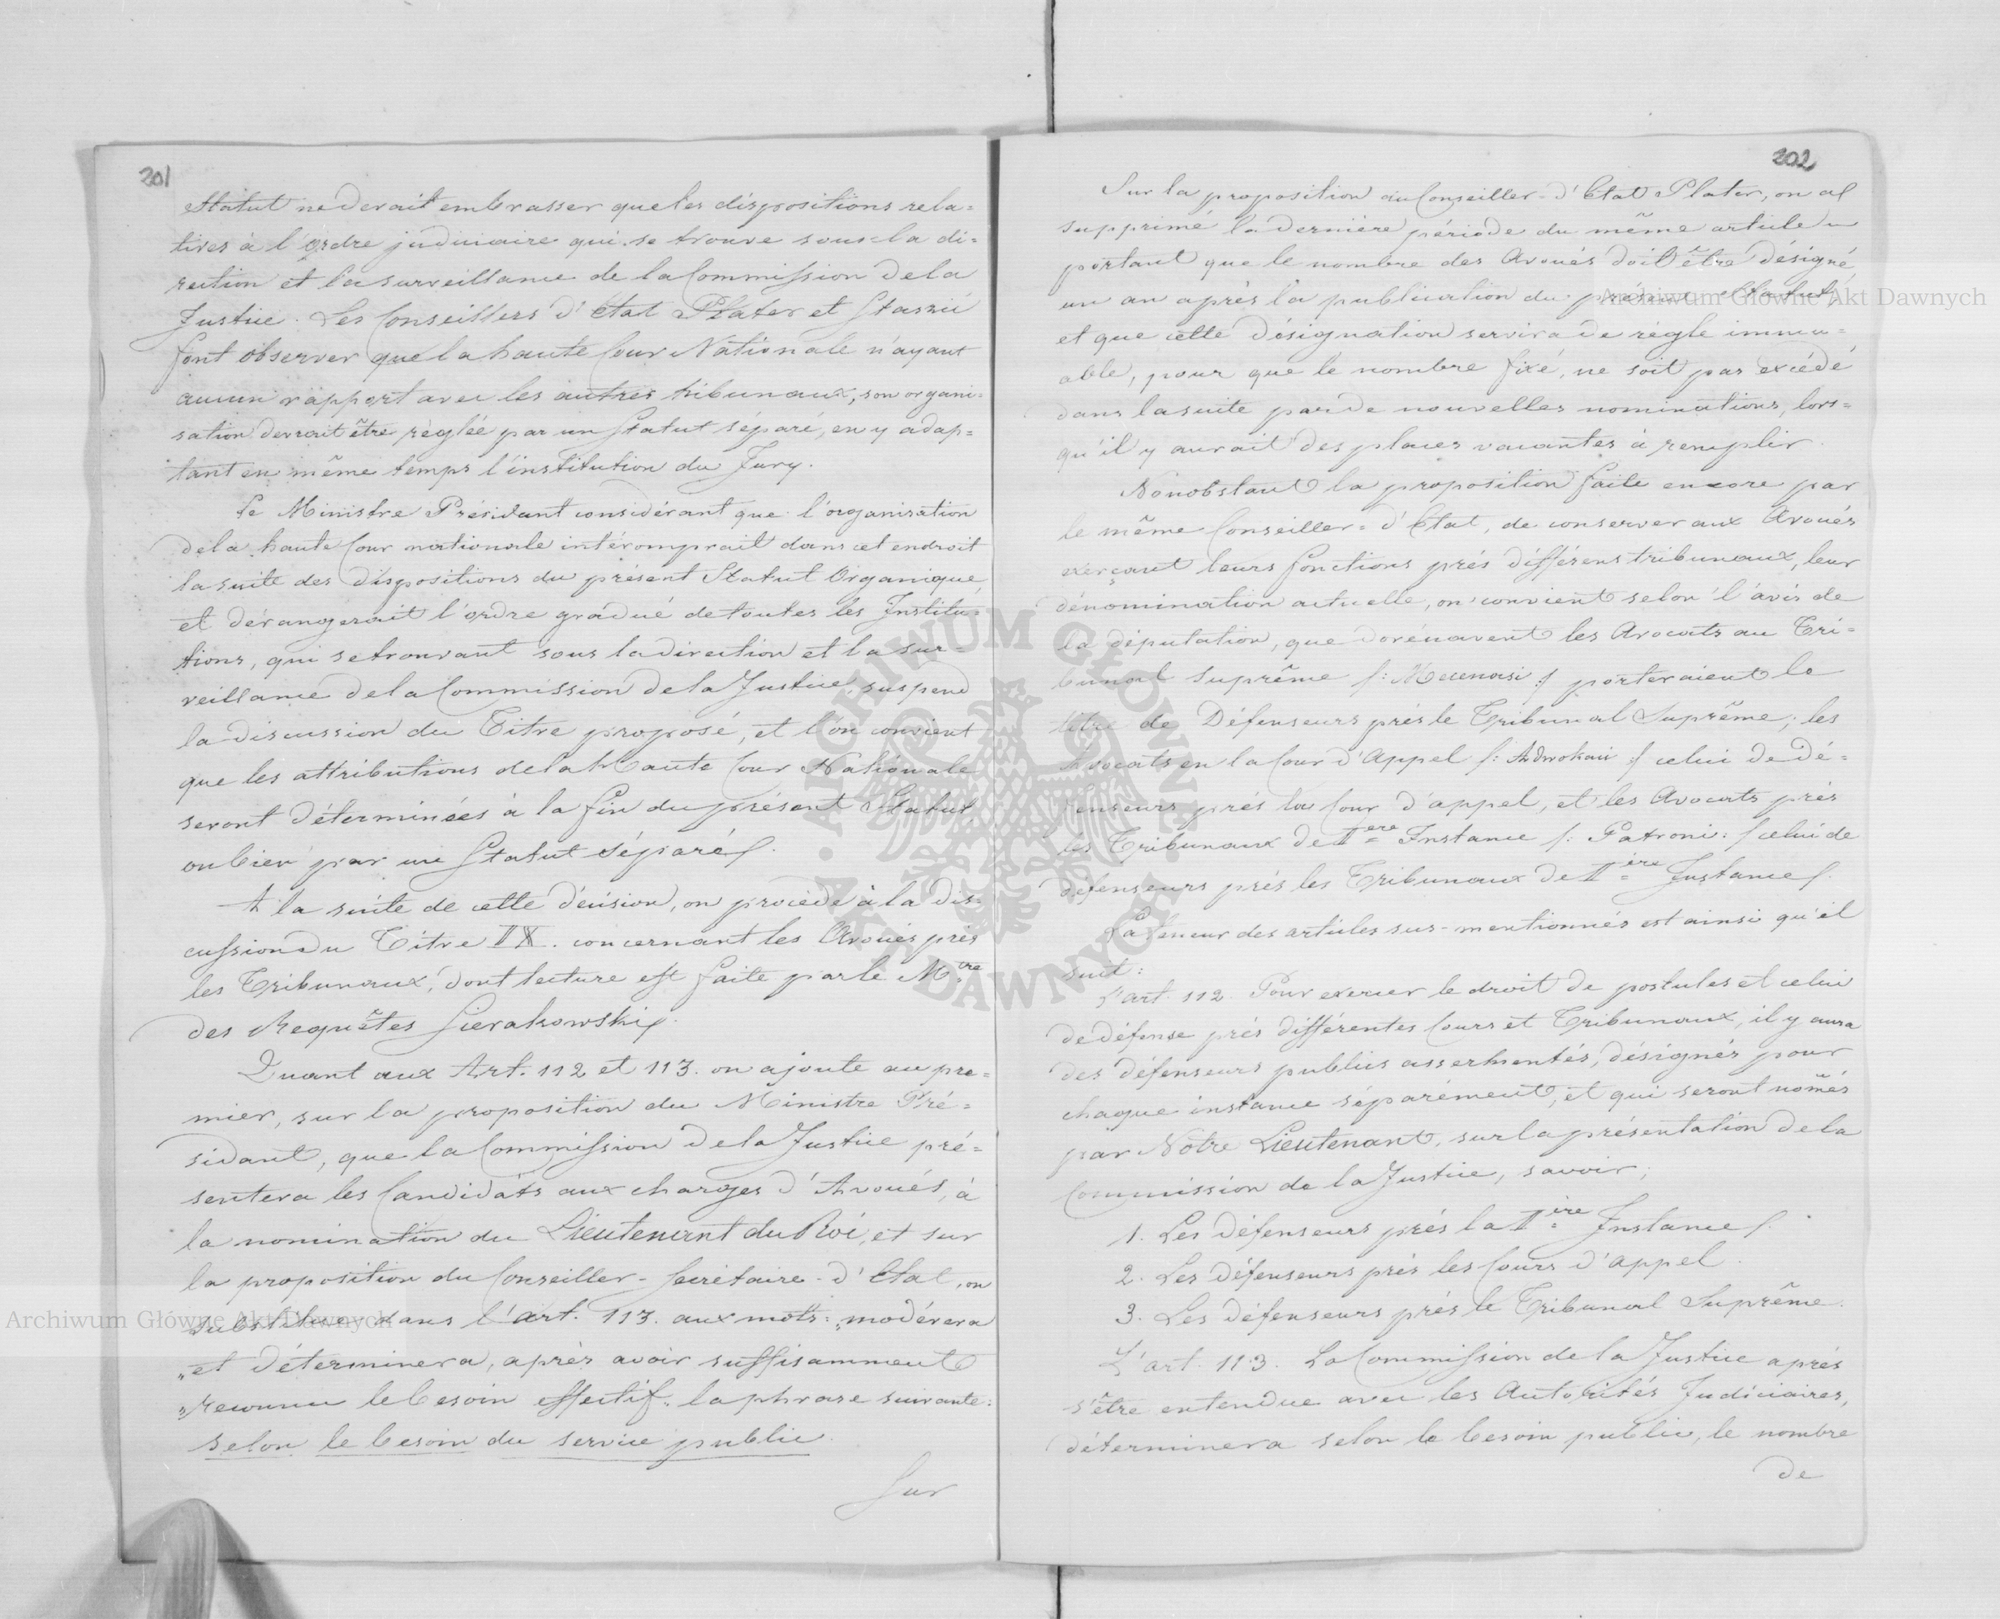 201
Statut ne devrait embrasser que les dispositions rela=
tives à l'ordre judiciaire qui se trouve sous la di=
rection et la surveillance de la Commission de la
Justice. Les Conseillers d'Etat Plater et Staszic
font observer que la haute Cour Nationale n'ayant
aucun rapport avec les autres tribunaux, son organi-
sation devrait être réglée par un Statut séparé, en y adap=
tant en même temps l'institution du Jury.
Le Ministre Président considérant que l'organisation
de la haute Cour nationale intéromprait dans cet endroit
la suite des dispositions du présent Statut Organique,
et dérangerait l'ordre gradué de toutes les Institu=
tions, qui se trouvant sous la direction et la sur=
veillance de la Commission de la Justice, suspend
la discussion du Titre proposé, et l'on convient
que les attributions de la Haute Cour Nationale
seront déterminées à la fin du présent Statut,
ou bien par un Statut séparé.
A la suite de cette décision, on procède à la dis-
cussion du Titre IX. concernant les Avoués près
les Tribunaux, dont lecture est faite par le M.tre
des Requêtes Sierakowski.
Quant aux Art. 112 et 113. on ajoute au pre=
mier, sur la proposition du Ministre Pré=
sidant, que la Commission de la Justice pré=
sentera les Candidats aux charges d'Avoués, à
la nomination du Lieutenant du Roi, et sur
la proposition du Conseiller-Secrétaire-d'Etat, on
substitue dans l'art. 113. aux mots: „modérera
„et déterminera, après avoir suffisamment
„reconnu le besoin effectif„ la phrase suivante:
selon le besoin du service public.
Sur
202
Sur la proposition du Conseiller-d'Etat Plater, on a
supprimé la dernière période du même article
portant que le nombre des Avoués doit être désigné
un an après la publication du présent Statut,
et que cette désignation servira de règle immu=
able, pour que le nombre fixé, ne soit pas excédé
dans la suite par de nouvelles nominations, lors=
qu'il y aurait des places vacantes à remplir.
Nonobstant la proposition faite encore par
le même Conseiller=d'Etat, de conserver aux Avoués
exerçant leurs fonctions près différens tribunaux, leur
dénomination actuelle, on convient selon l'avis de
la députation, que dorénavent les Avocats au Tri=
bunal Suprême /: Mecenasi :/ porteraient le
titre de Défenseurs près le Tribunal Suprême; les
Avocats en la Cour d'Appel /: Adwokaci :/ celui de dé=
fenseurs près la Cour d'appel, et les Avocats près
les Tribunaux de I.ère Instance /: Patroni :/ celui de
défenseurs près les Tribunaux de I.ière Instance.
La teneur des articles sus-mentionnés est ainsi qu'il
suit:
L'art. 112. Pour exercer le droit de postules et celui
de défense près différentes Cours et Tribunaux, il y aura
des défenseurs publics assermentés, désignés pour
chaque instance séparément, et qui seront nom̃és
par Notre Lieutenant, sur la présentation de la
Commission de la Justice, savoir;
1. Les défenseurs près la I.ière Instance.
2. Les défenseurs près les Cours d'Appel.
3. Les défenseurs près le Tribunal Suprême.
L'art. 113. La Commission de la Justice après
s'être entendue avec les Autorités Judiciaires,
déterminera selon le besoin public, le nombre
de
Archiwum Główne Akt Dawnych
Archiwum Główne Akt Dawnych
ARCHIWUM GŁÓWNE AKT DAWNYCH